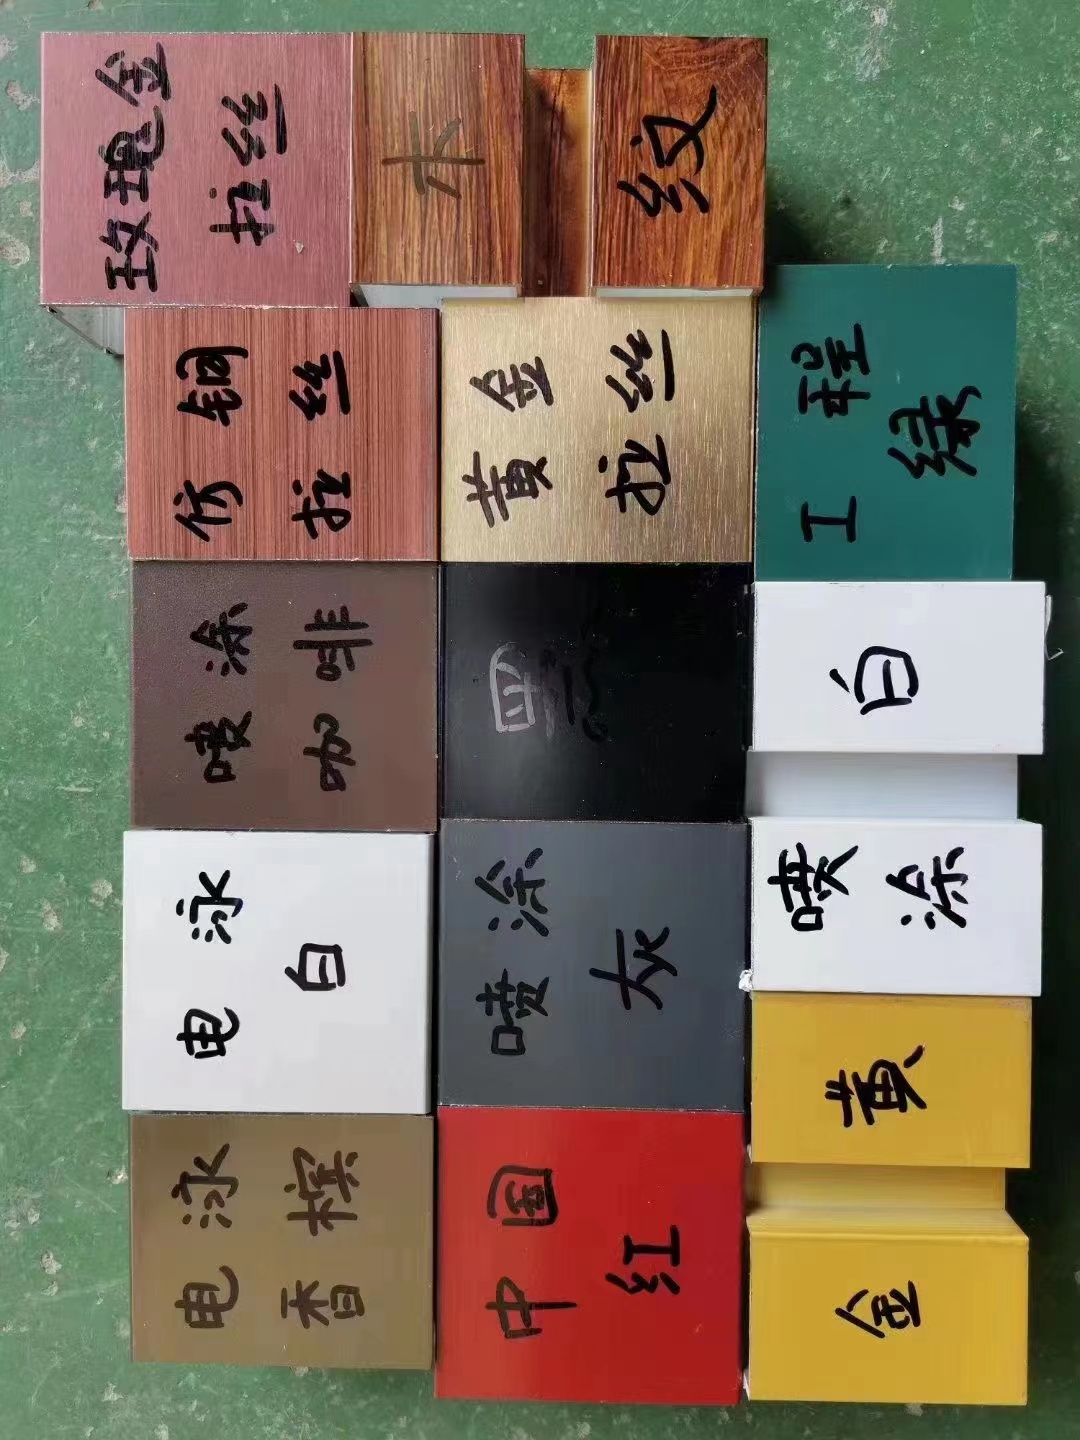 电泳
香槟
电泳
白
喷涂
咖啡
仿铜
拉丝
玫瑰金
拉丝
中国
红
喷涂
灰
黑
黄金
拉丝
木
纹
金黄
喷
涂
白
工程
绿